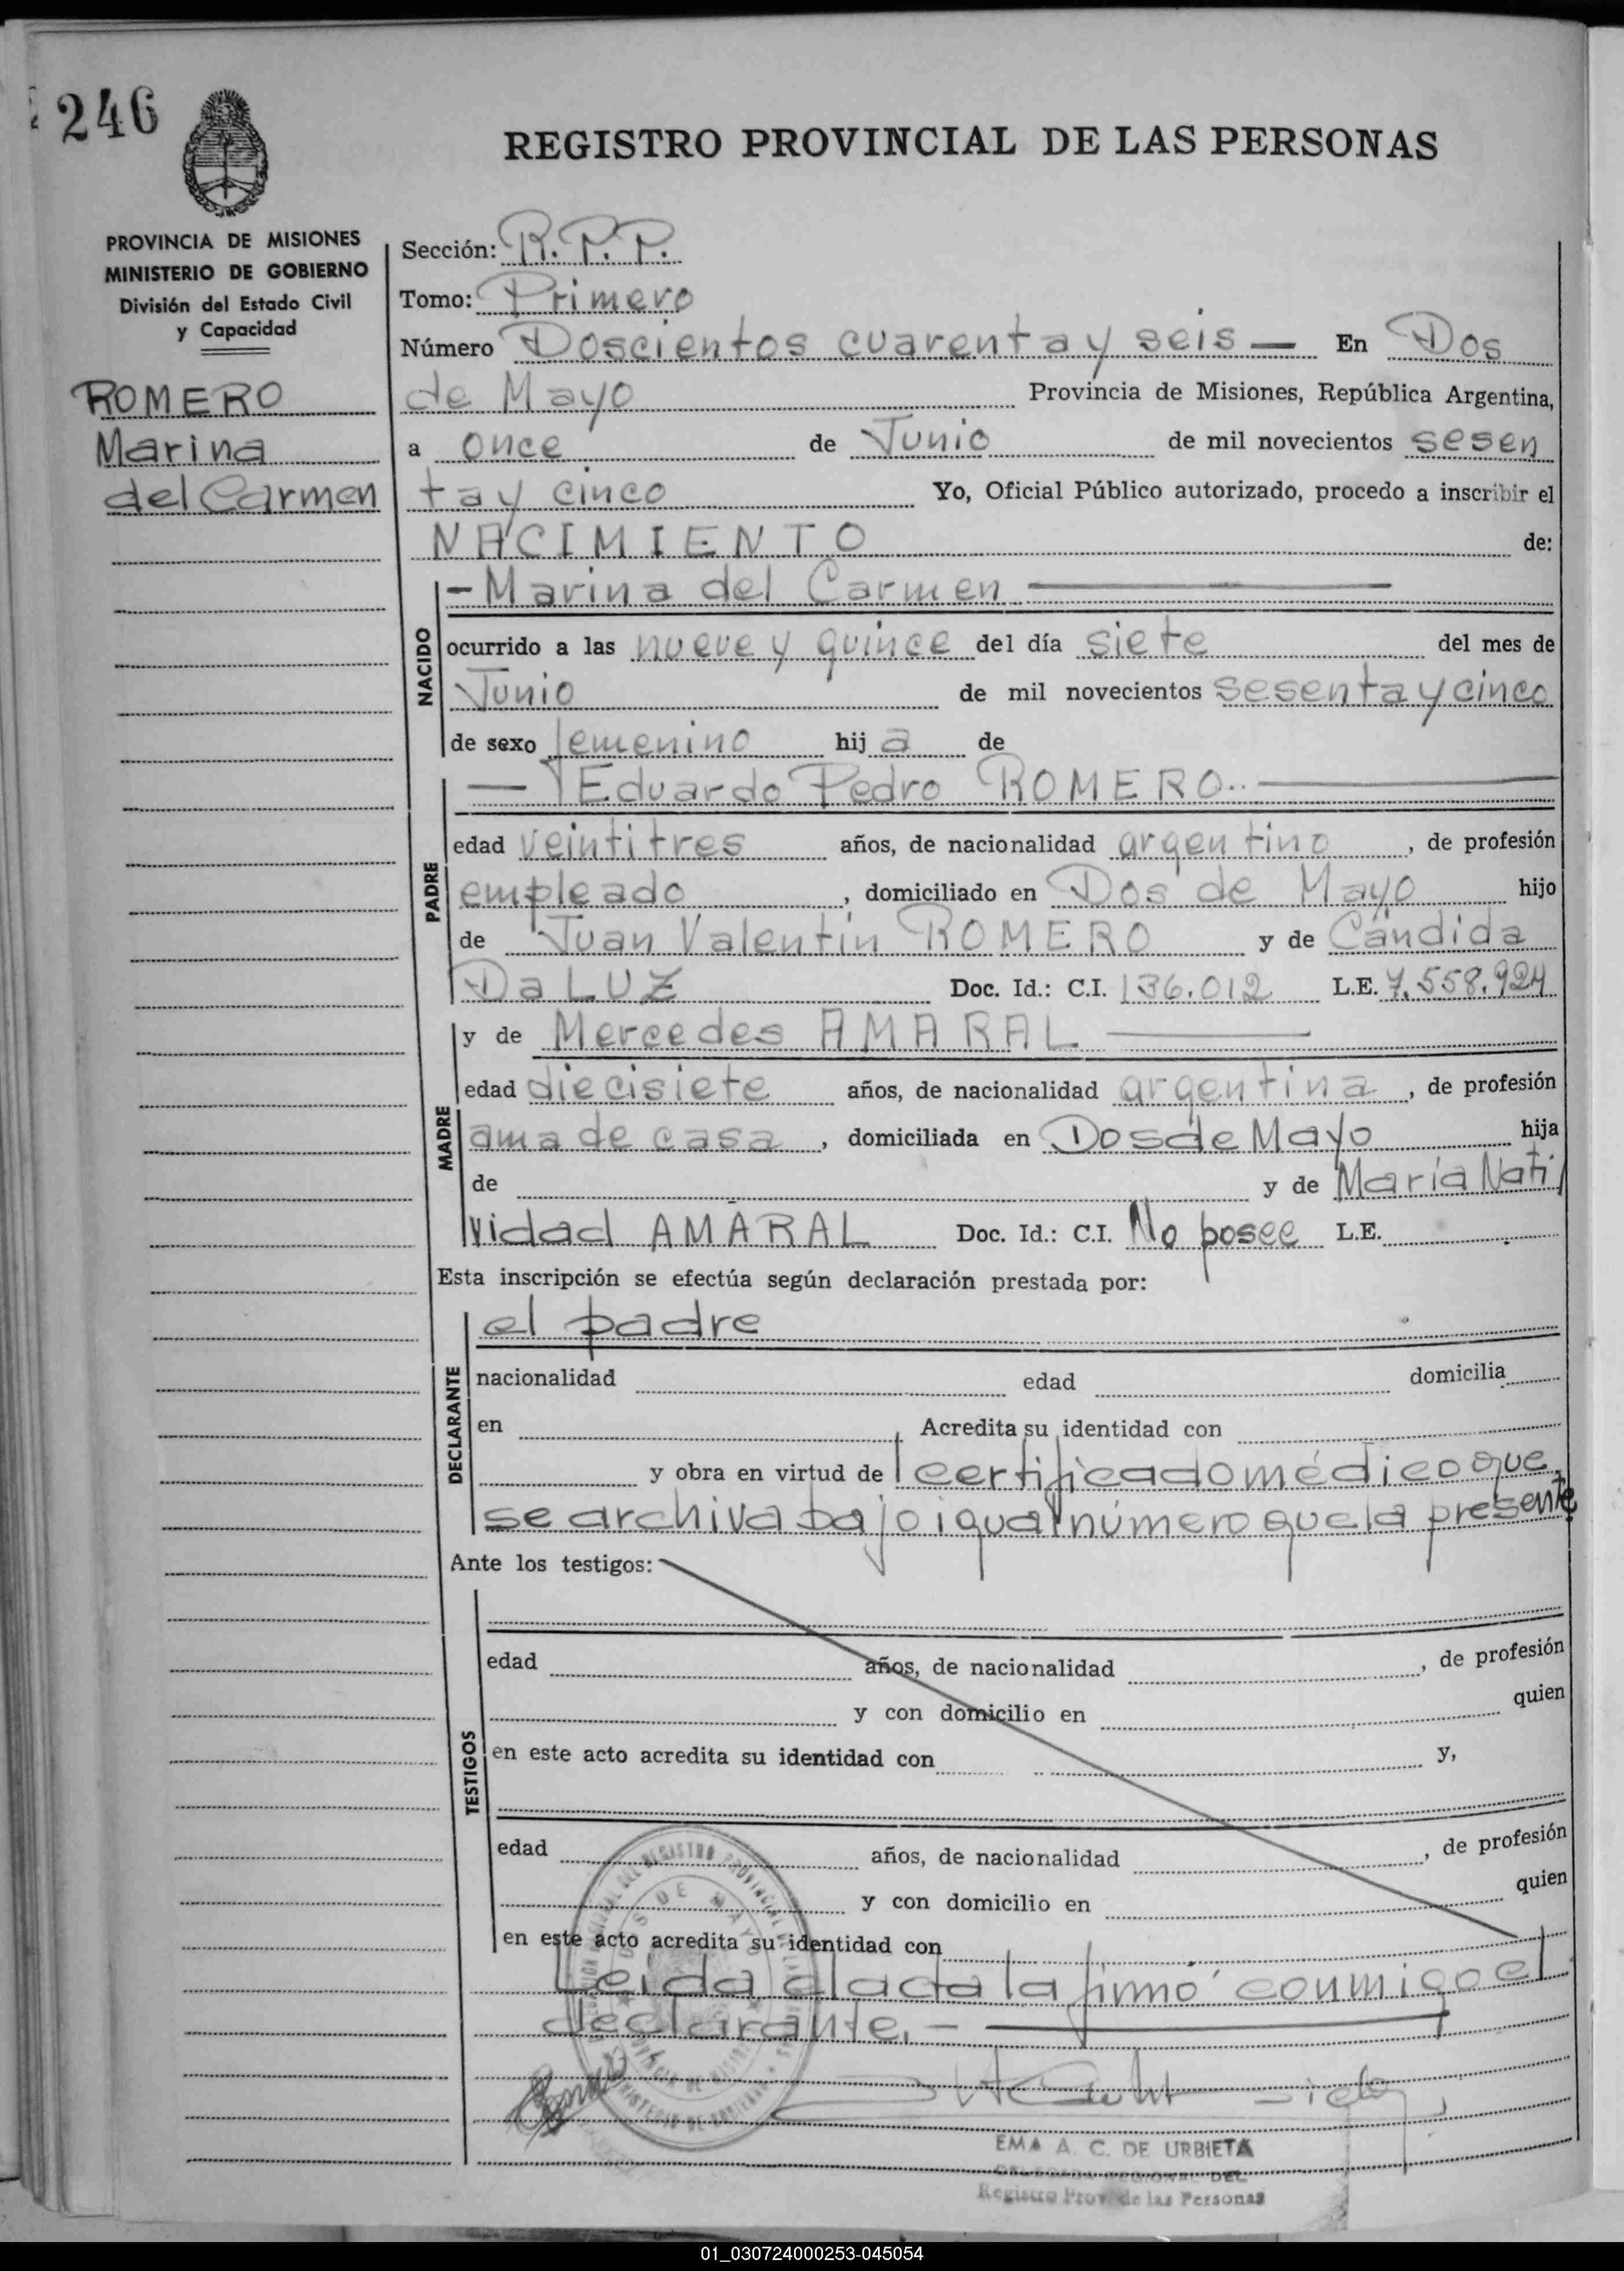 246
REGISTRO PROVINCIAL DE LAS PERSONAS
PROVINCIA DE MISIONES
MINISTERIO DE GOBIERNO
División del Estado Civil
y Capacidad
ROMERO
Marina
del Carmen
Sección: R.P.P.
Tomo: Primero
Número Doscientos cuarenta y seis — En Dos
de Mayo Provincia de Misiones, República Argentina,
a once de Junio de mil novecientos sesen
ta y cinco Yo, Oficial Público autorizado, procedo a inscribir el
NACIMIENTO de:
NACIDO
- Marina del Carmen —
ocurrido a las nueve y quince del día siete del mes de
Junio de mil novecientos sesenta y cinco
de sexo femenino hij a de
PADRE
— Eduardo Pedro ROMERO.. —
edad veintitres años, de nacionalidad argentino, de profesión
empleado, domiciliado en Dos de Mayo hijo
de Juan Valentín ROMERO y de Cándida
Da LUZ Doc. Id.: C.I. 136.012 L.E. 7.558.924
MADRE
y de Mercedes AMARAL —
edad diecisiete años, de nacionalidad argentina, de profesión
ama de casa, domiciliada en Dos de Mayo hija
de y de María Nati
vidad AMARAL Doc. Id.: C.I. No posee L.E.
Esta inscripción se efectúa según declaración prestada por:
DECLARANTE
el padre
nacionalidad edad domicilia
en Acredita su identidad con
y obra en virtud de certificado médico que
se archiva bajo igual número que la presente
Ante los testigos:
TESTIGOS
edad años, de nacionalidad, de profesión
y con domicilio en quien
en este acto acredita su identidad con y,
edad años, de nacionalidad, de profesión
y con domicilio en quien
en este acto acredita su identidad con
Leída el acta la firmó conmigo el
declarante.- —
DOS DE MAYO
EMA A. C. DE URBIETA
Registro Prov. de las Personas
01_030724000253-045054